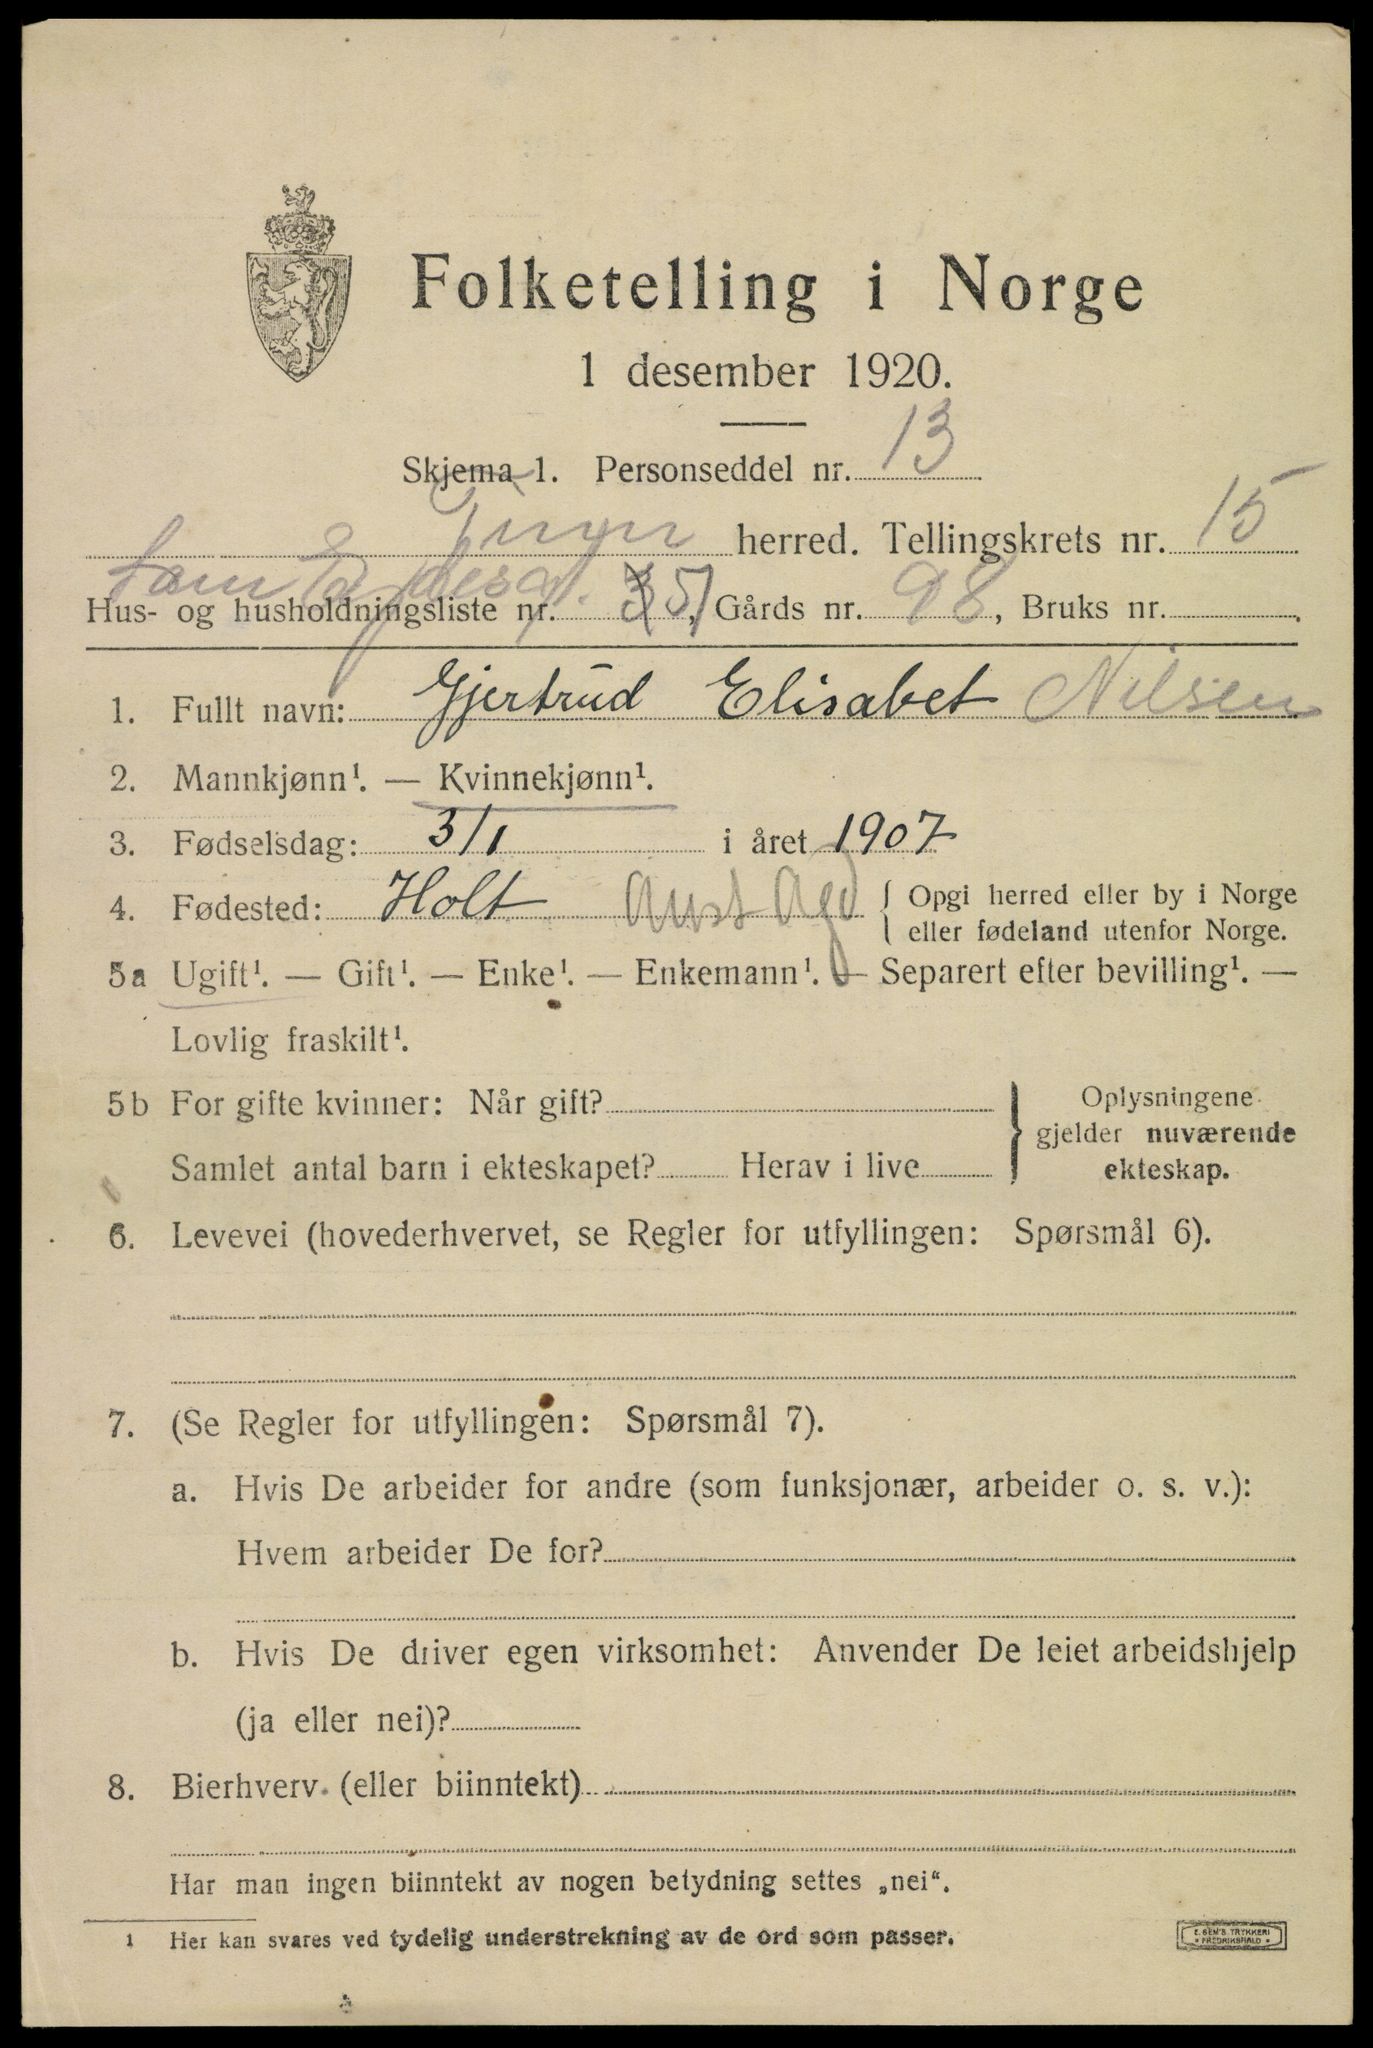 Folketelling i Norge
1 desember 1920.
Skjema 1. Personseddel nr. 13
herred. Tellingskrets nr. 15
Hus- og husholdningsliste nr. 5, Gårds nr. 98, Bruks nr.
1. Fullt navn: Gjertrud Elisabet Nilsen
2. Mannkjønn¹. — Kvinnekjønn¹.
3. Fødselsdag: 3/1 i året 1907
4. Fødested: Holt Aust Agd { Opgi herred eller by i Norge
eller fødeland utenfor Norge.
5a Ugift¹. — Gift¹. — Enke¹. — Enkemann¹. — Separert efter bevilling¹. —
Lovlig fraskilt¹.
5b For gifte kvinner: Når gift?
Samlet antal barn i ekteskapet? Herav i live
} Oplysningene
gjelder nuværende
ekteskap.
6. Levevei (hovederhvervet, se Regler for utfyllingen: Spørsmål 6).
7. (Se Regler for utfyllingen: Spørsmål 7).
a. Hvis De arbeider for andre (som funksjonær, arbeider o. s. v.):
Hvem arbeider De for?
b. Hvis De driver egen virksomhet: Anvender De leiet arbeidshjelp
(ja eller nei)?
8. Bierhverv (eller biinntekt)
Har man ingen biinntekt av nogen betydning settes „nei“.
¹ Her kan svares ved tydelig understrekning av de ord som passer.
E. SEM'S TRYKKERI
FREDRIKSHALD